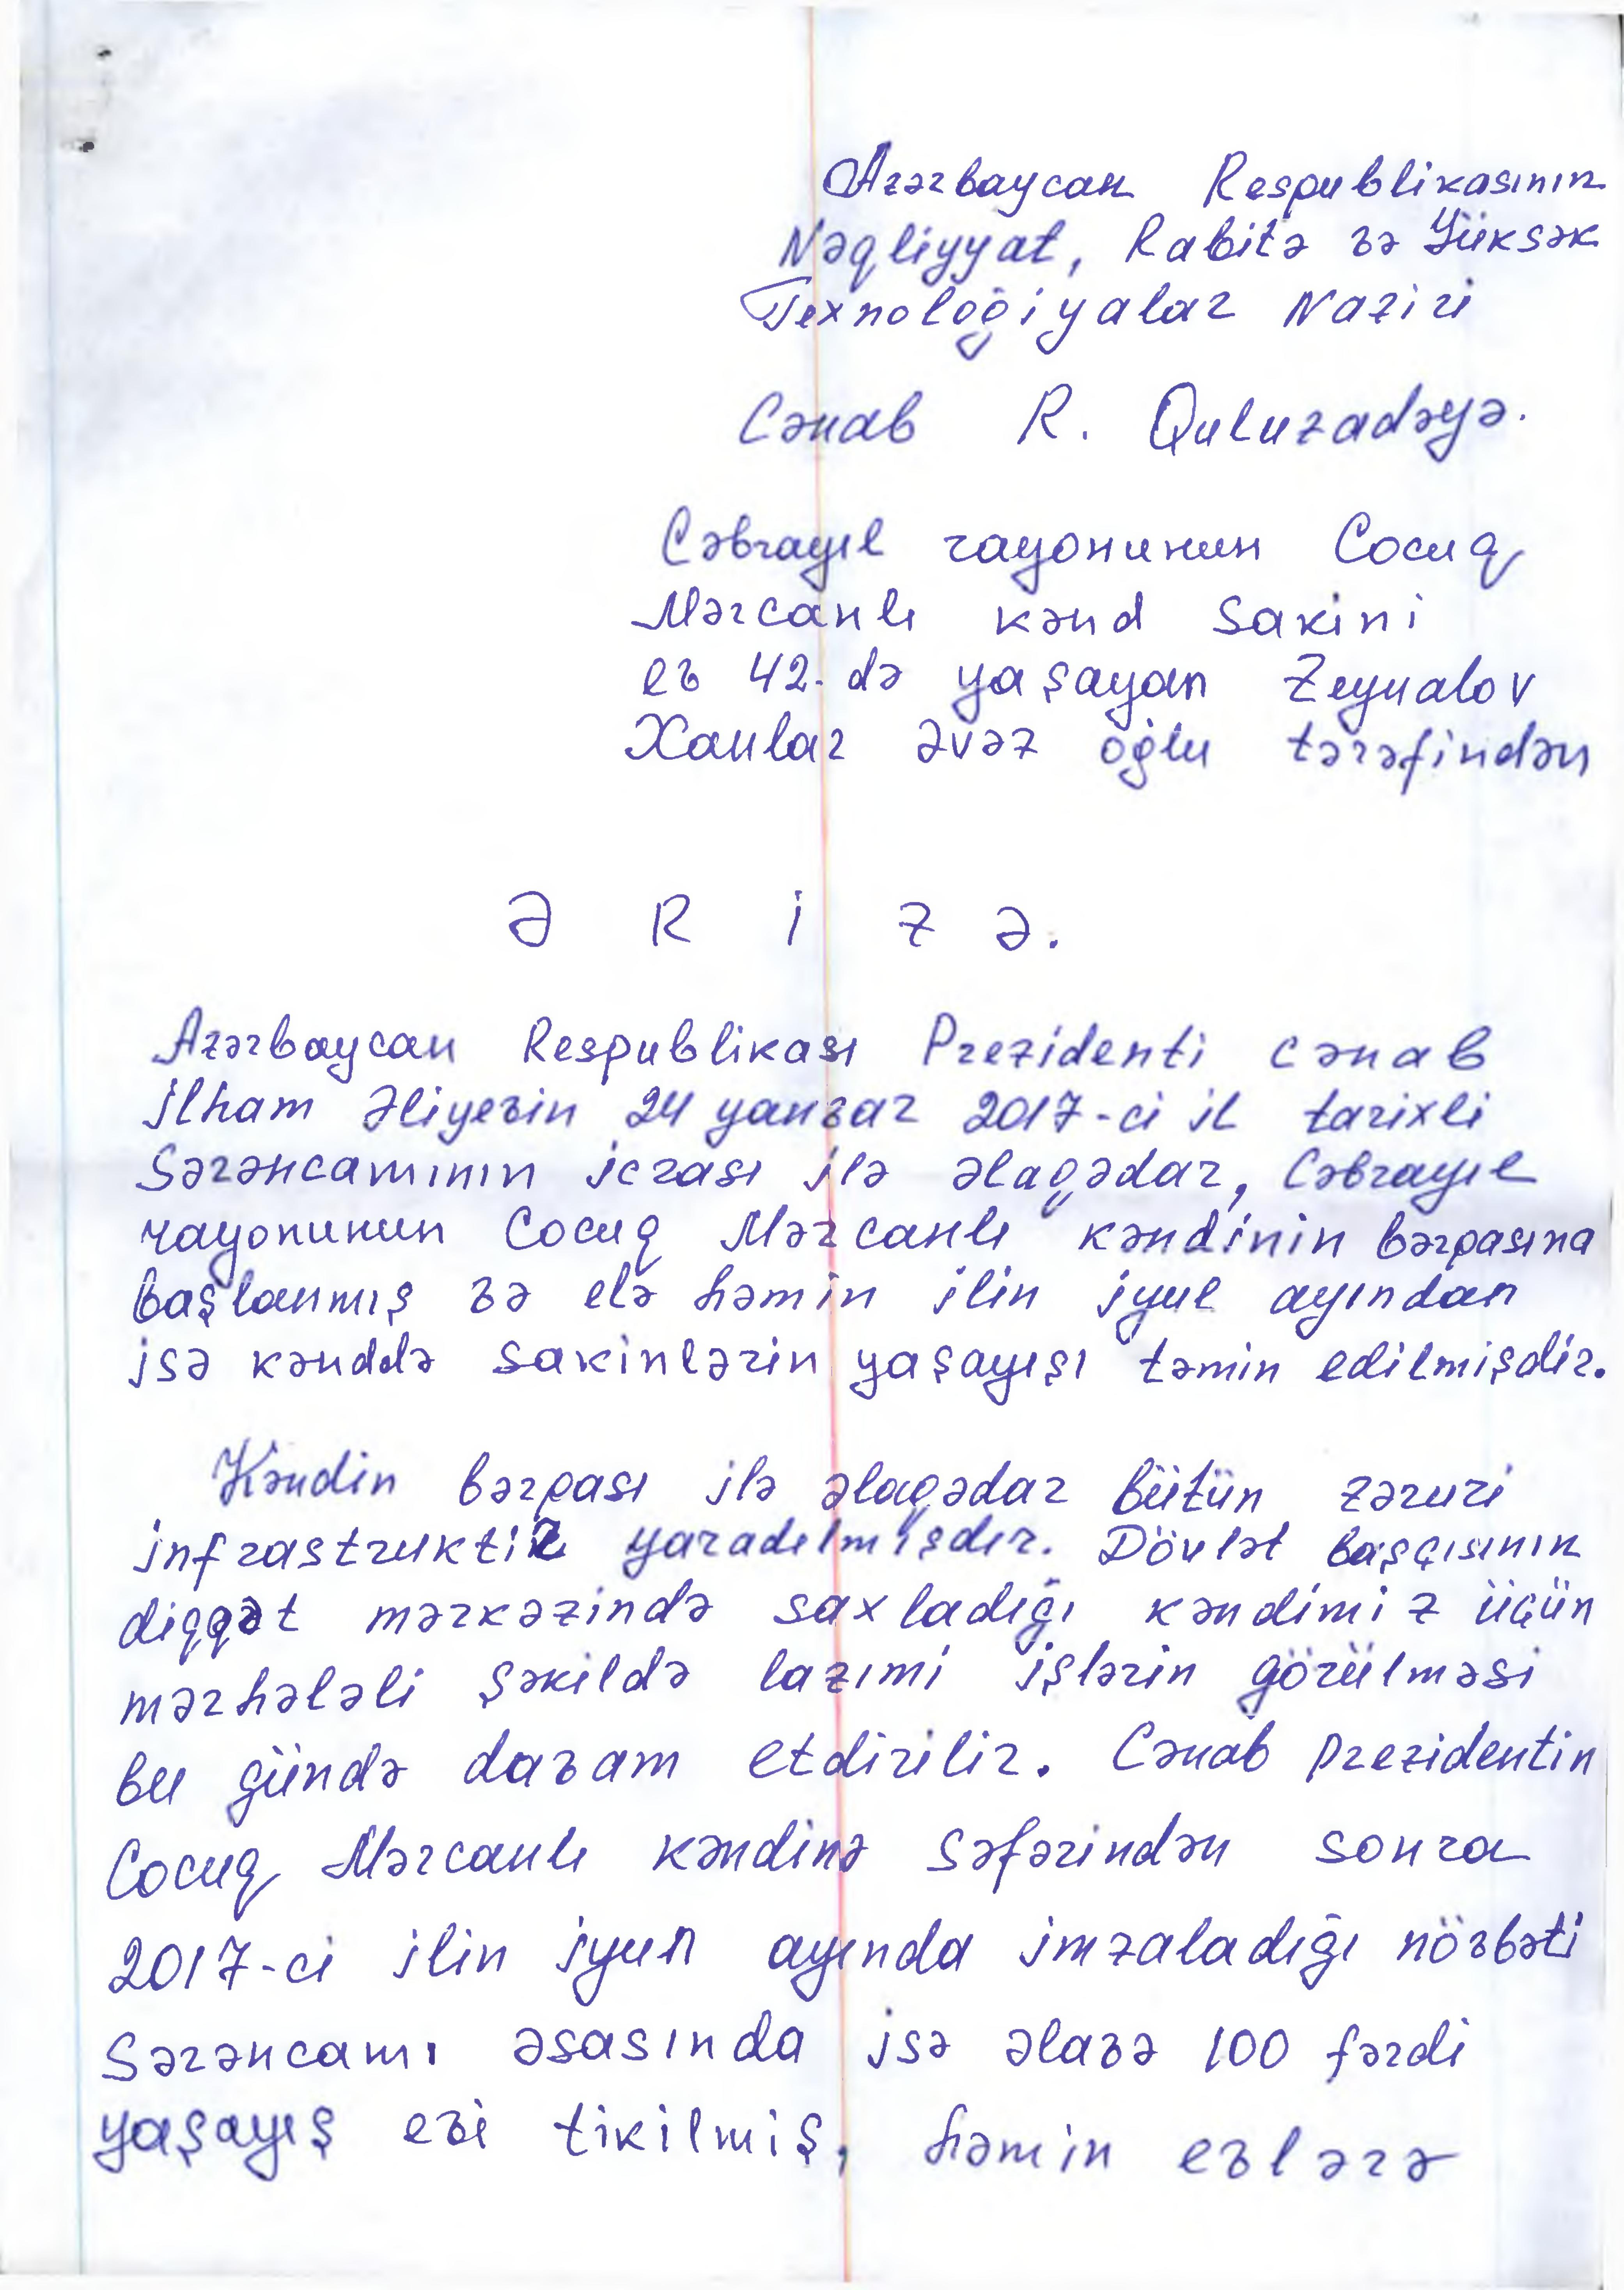 Azərbaycan Respublikasının
Nəqliyyat, Rabitə və Yüksək
Texnoloğiyalar Naziri
Cənab R. Quluzadəyə.
Cəbrayıl rayonunun Cocuq
Mərcanlı kənd sakini
ev 42-də yaşayan Zeynalov
Xanlar Əvəz oğlu tərəfindən
Ə R i Z Ə.
Azərbaycan Respublikası Prezidenti cənab
İlham Əliyevin 24 yanvar 2017-ci il tarixli
Sərəncamının icrası ilə əlaqədar, Cəbrayıl
rayonunun Cocuq Mərcanlı kəndinin bərpasına
başlanmış və elə həmin ilin iyul ayından
isə kənddə sakinlərin yaşayışı təmin edilmişdir.
Kəndin bərpası ilə əlaqədar bütün zəruri
infrastruktir yaradılmışdır. Dövlət başçısının
diqqət mərkəzində saxladığı kəndimiz üçün
mərhələli şəkildə lazımi işlərin görülməsi
bu gündə davam etdirilir. Cənab prezidentin
Cocuq Mərcanlı kəndinə səfərindən sonra
2017-ci ilin iyun ayında imzaladığı növbəti
Sərəncamı əsasında isə əlavə 100 fərdi
yaşayış evi tikilmiş, həmin evlərə